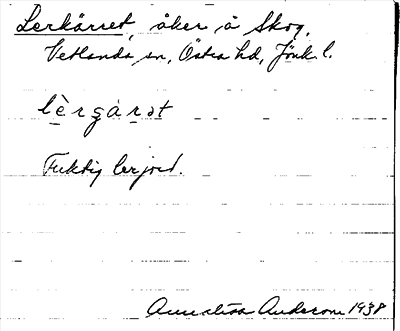 Lerkärret, åker å Skog,
Vetlanda sn, Östra hd, Jönk. l.
lèrgárət
Fuktig lerjord.
Annalisa Anderson 1938